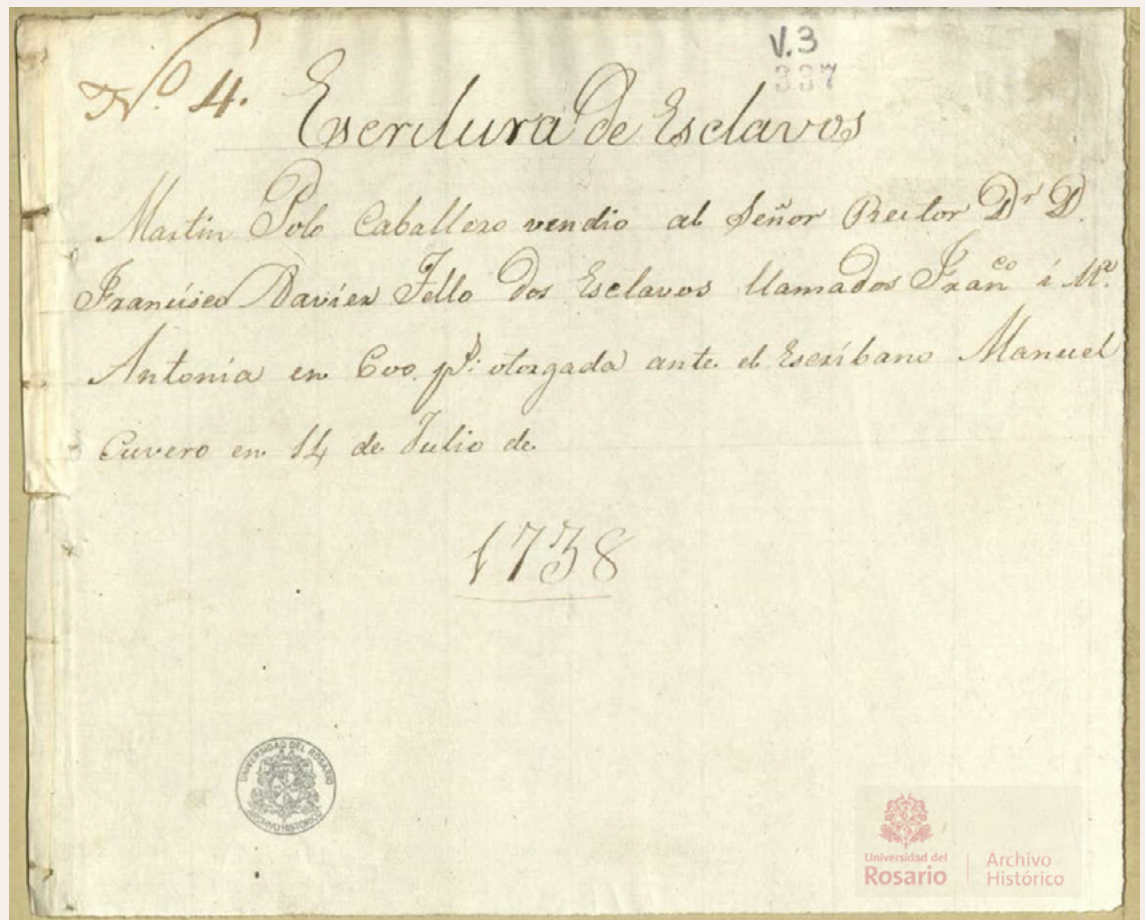 V.3
337
Nº 4. Escritura de Esclavos
Martin Polo Caballero vendio al Señor Rector Dr D.
Francisco Xavier Tello dos Esclavos llamados Franco i Mª
Antonia en 600 ps. otorgada ante el Escribano Manuel
Cuvero en 14 de Julio de
1738
UNIVERSIDAD DEL ROSARIO
ARCHIVO HISTORICO
Universidad del
Rosario
Archivo
Histórico